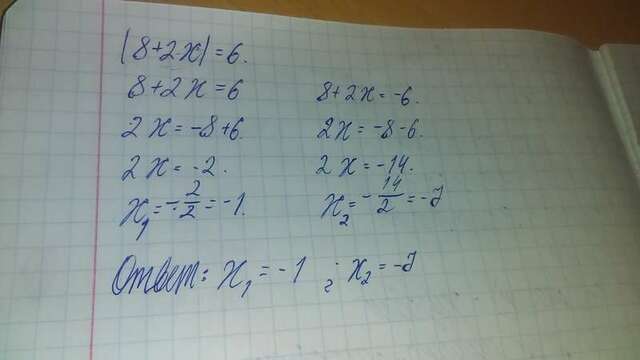 |8+2x|=6.
8+2x=6
2x=-8+6.
2x=-2.
x₁=-2/2=-1.
8+2x=-6.
2x=-8-6.
2x=-14.
x₂=-14/2=-7
Ответ: x₁=-1 ; x₂=-7